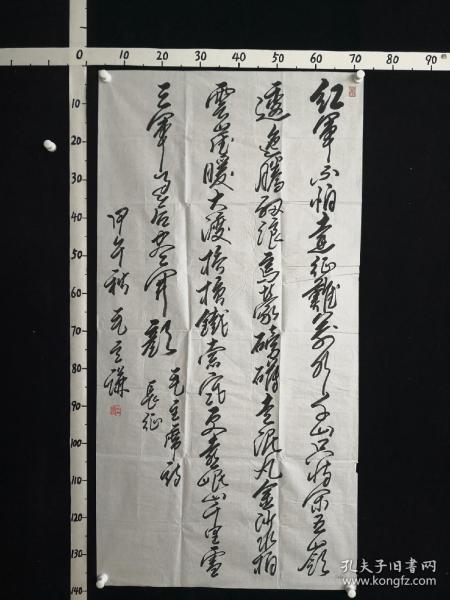 0 10 20 30 40 50 60 70 80 90
10
20
30
40
50
60
70
80
90
100
110
120
130
140
紅軍不怕遠征難萬水千山只等閑五嶺
逶迤騰細浪烏蒙磅礴走泥丸金沙水拍
雲崖暖大渡橋橫鐵索寒更喜岷山千里雪
三軍過后盡開顏
毛主席詩
長征
甲午秋
孔夫子旧书网
www.kongfz.com